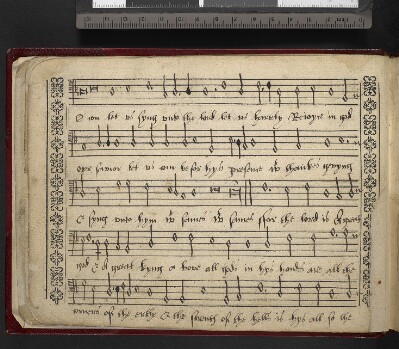 O com let vs syng vnto the lord let vs hartely Reioyce in god
oure savior let vs com before hys presence wt thankes gevyng
& syng vnto hym wt ... for the lord is a great
god & a great kyng a bove all gods in hys handes are all the
corners of the erthe & the strenth of the hylls is hys all so the